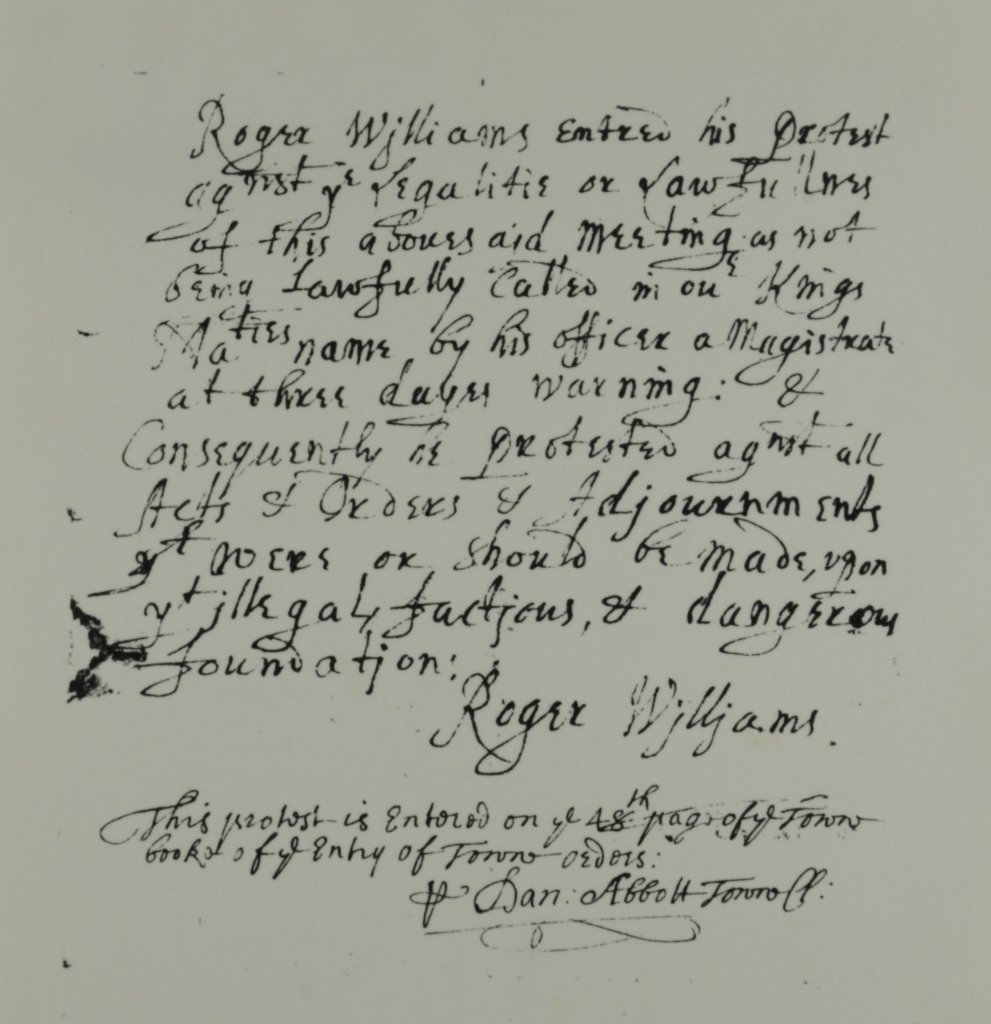 Roger Wjlliams Entred his Protest
agnist ye Legalitie or Lawfullnes
of this abovesaid Meeting as not
being Lawfully Called in our Kings
Maties name by his officer a Magistrate
at three dayes warning: &
Consequently he Protested agnst all
Acts & Orders & Adjournments
yt were or should be made, upon
yt jllegal, factjous, & dangerous
foundatjon:
Roger Wjlljams.
This protest is Entered on ye 48th page of ye Towne
booke of ye Entry of Towne orders:
Dan: Abbott Towne Cl: